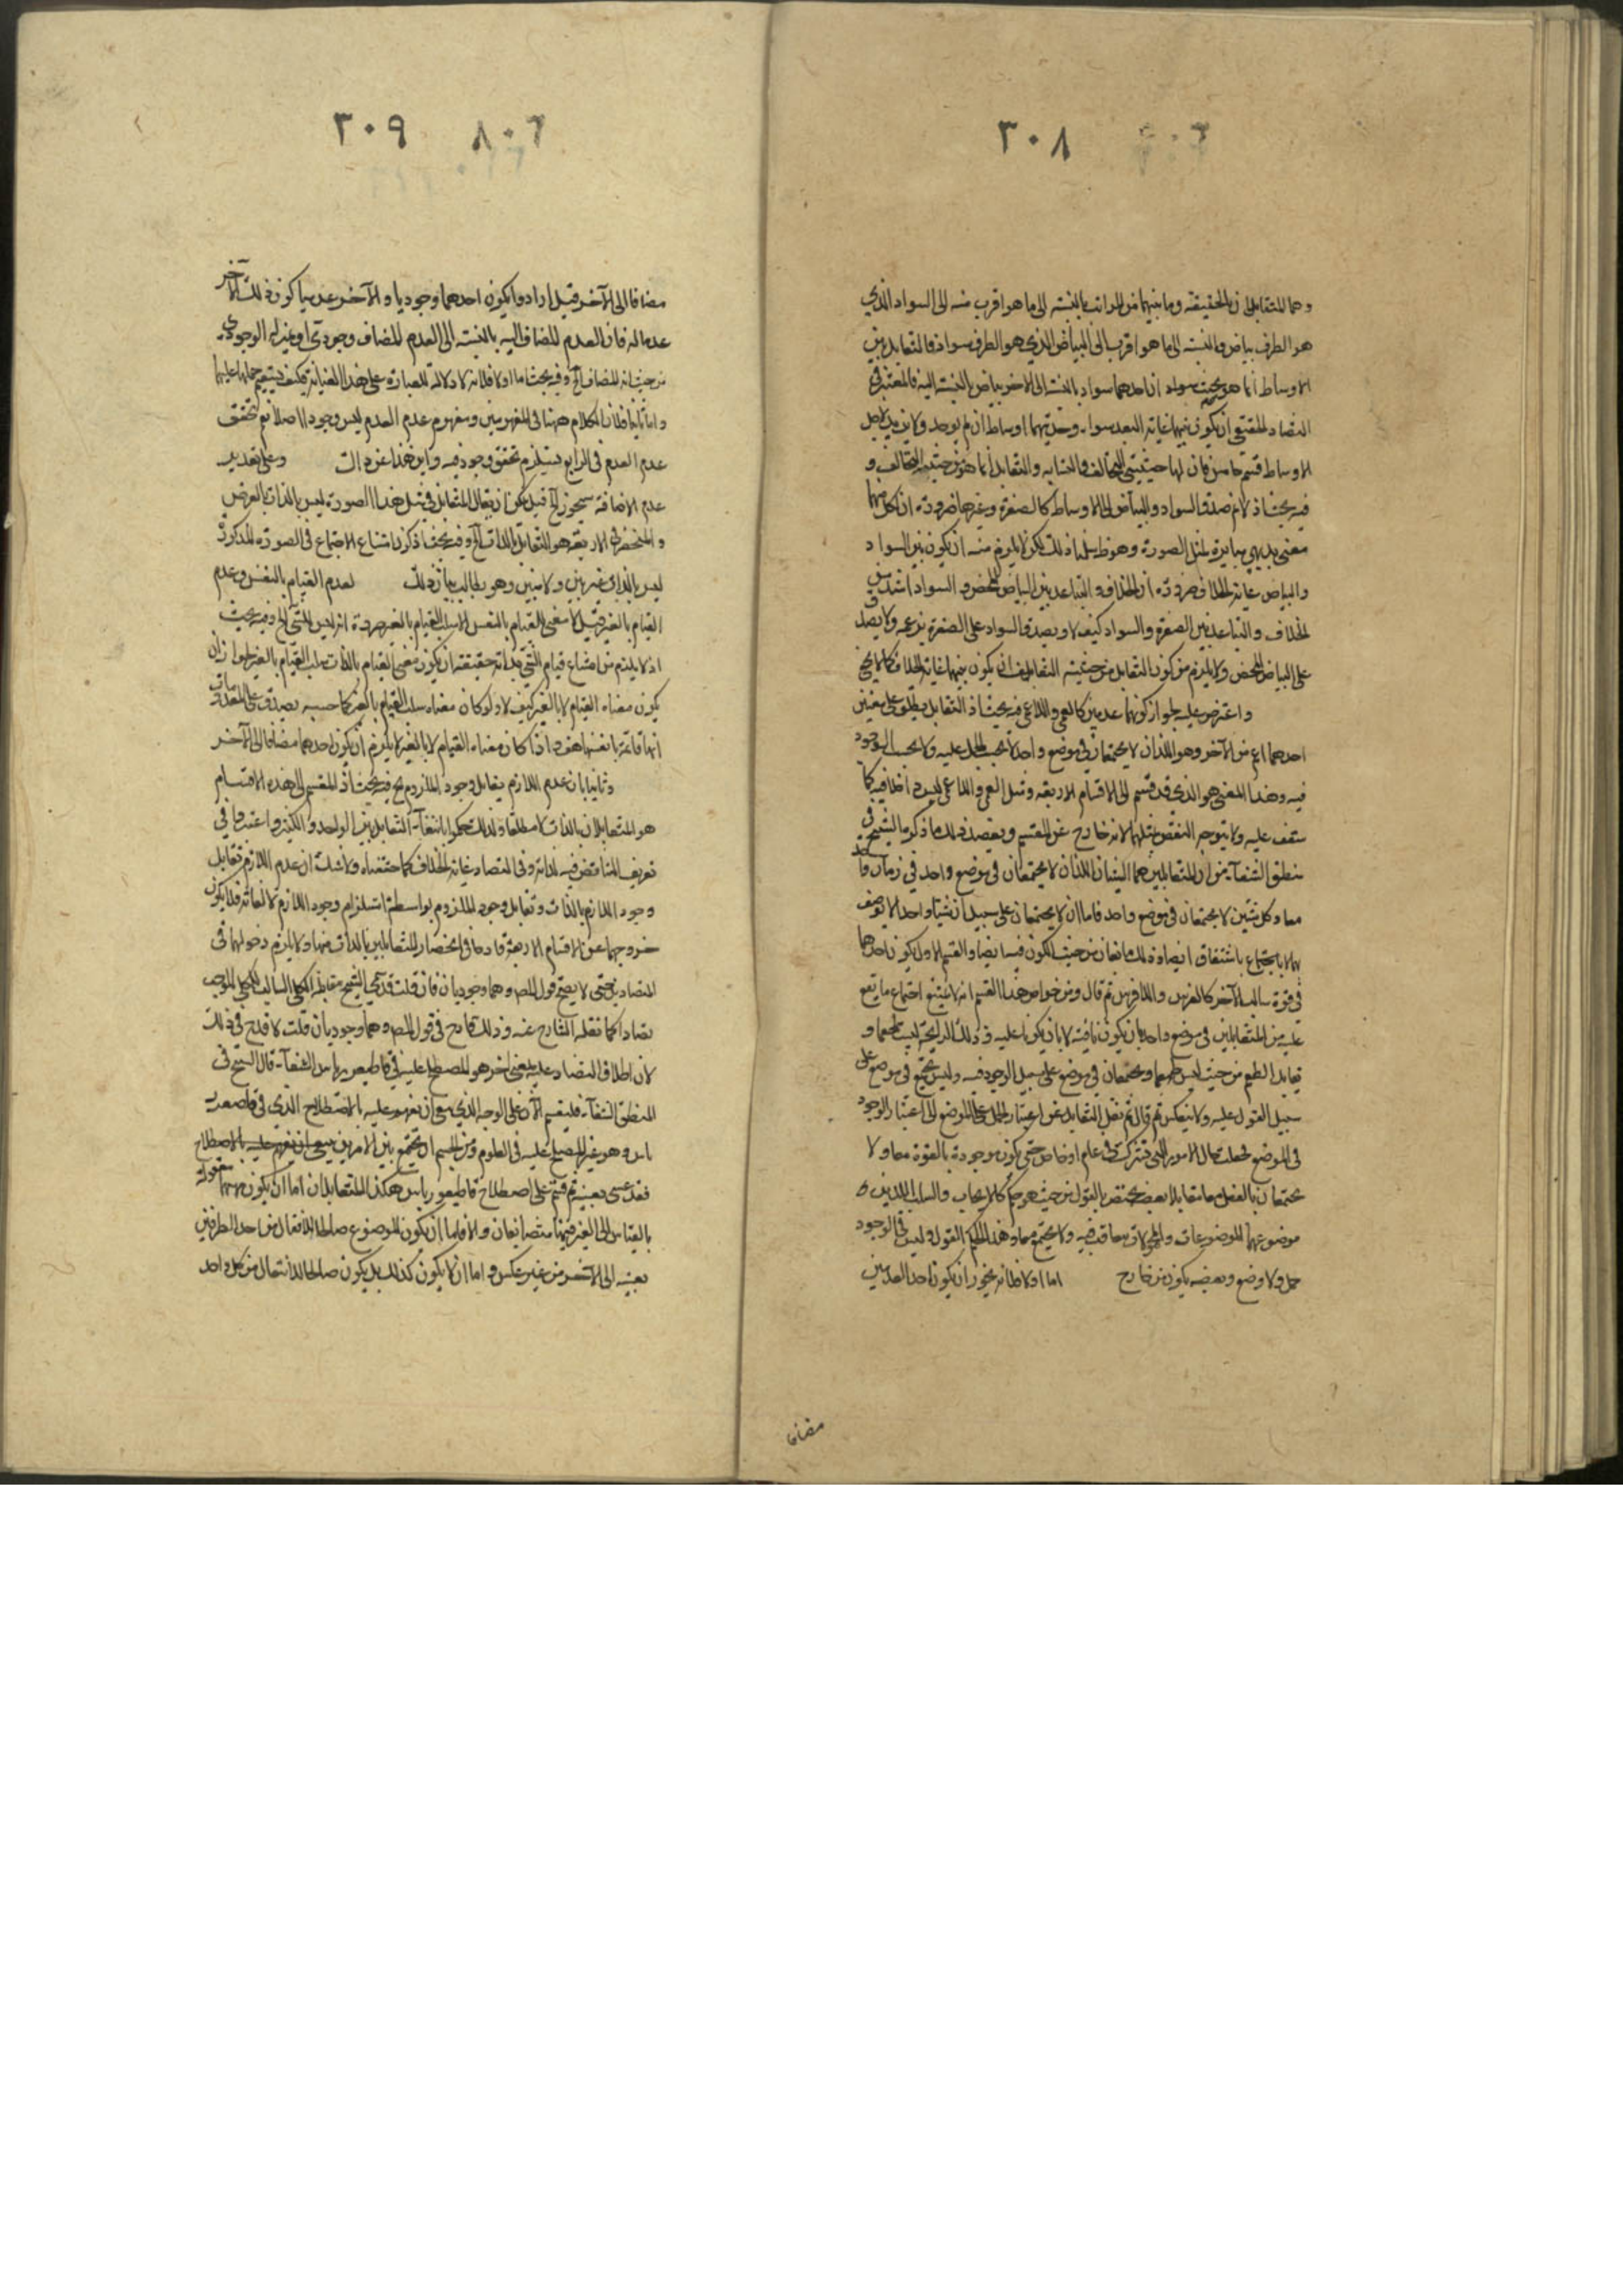 ٣٠٨
وهما المتقابلان بالحقيقة وما بينهما من المراتب بالنسبة الى ما هو اقرب منه الى السواد الذي
هو الطرف بياض وبالنسبة الى ما هو اقرب الى البياض الذي هو الطرف سواد فالتقابل بين
الاوساط انما هو بحيث ان احدهما سواد بالنسبة الى الاخر بياض بالنسبة اليه فالمعتبر في
التضاد الحقيقي ان يكون بينهما غاية البعد سواء وجد بينهما اوساط ان لم يوجد ولا يزيد لاجل
الاوساط قسم خامس فان لها حيثيتي التخالف والتشابه والتقابل انما هو من حيثية التخالف و
فيه بحث اذ لا نم صدق السواد والبياض على الاوساط كالصفرة وغيرها ضرورة ان لكل منها
معنى بديهي مغايرة لمثل الصورة وهو ظ سلمنا ذلك لكن لا يلزم منه ان يكون بين السواد
والبياض غاية الخلاف ضرورة ان الخلاف والتباعد بين البياض المحض والسواد اشد من
الخلاف والتباعد بين الصفرة والسواد كيف لا ويصدق السواد على الصفرة بزعمه ولا يصدق
على البياض المحض ولا يلزم من كون التقابل من حيثية التقابل ان يكون بينهما غاية الخلاف كما لا يخفى
واعترض عليه بجواز كونهما عدميين كالعمى واللاعمى فيه بحث اذ التقابل يطلق على معنيين
احدهما اعم من الآخر وهو اللذان لا يجتمعان في موضع واحد لا بحسب الحمل عليه ولا بحسب الوجود
فيه وهذا المعنى هو الذي قد قسم الى الاقسام الاربعة ومثل العمى واللاعمى ليس داخلا فيه كما
ستقف عليه ولا يتوجه النقض بمثلهما لانه خارج عن المقسم ويعضد ذلك ما ذكره الشيخ في
منطق الشفاء من ان المتقابلين هما الشيئان اللذان لا يجتمعان في موضع واحد في زمان واحد
معا وكل شيئين لا يجتمعان في موضع واحد فاما ان لا يجتمعان على سبيل ان شيئا واحدا لا يوصف
بهما باجتماع باشتقاق ايضا وذلك متمانعان من حيث الكون فيه ايضا والقسم الاول يكون احدهما
في قوة سالب الآخر كالفرس واللافرس ثم قال ومن خواص هذا القسم انه لا يمتنع اجتماع ما يقع
عليه من المتقابلين في موضع واحد بان يكون نافية لا بان يكونا عليه وذلك الرايحة ليست بطعم و
تقابل الطعم من حيث ليس طعما ويجتمعان في موضع على سبيل الوجود فيه وليس يجتمع في موضع على
سبيل القول عليه ولا ينعكس ثم قال ثم نقل التقابل عن اعتبار الحمل على الموضع الى اعتبار الوجود
في الموضع فجعلت حال الامور التي تشترك في عام او خاص حتى يكون موجودة بالقوة معا ولا
تجتمعان بالفعل معا متقابلا بعضه يختص بالقول من حيث هو حكم كالايجاب والسلب اللذين
موضوعهما الموضوعات والمحمولات متعاقب فيه ولا يجتمع معا وهذا الحكم القول وليس في الوجود
حمل ولا وضع وبعضه يكون من خارج اما اولا فلانه يجوز ان يكون احد العدمين
مضافا
٣٠٩
مضافا الى الآخر قيل ارادوا بكون احدهما وجوديا والآخر عدميا كون ذلك الآخر
عدما له فان العدم المضاف اليه بالنسبة الى العدم المضاف وجودي او غير له الوجودي
من حيث انه المضاف الخ وفيه بحث اما اولا فلانه لا دلالة للعبارة على هذا العناية فكيف يستقيم حملها عليها
واما ثانيا فلان الكلام ههنا في المفهومين ومفهوم عدم العدم ليس وجودا اصلا نعم تحقق
عدم العدم في الواقع يستلزم تحقق وجود فيه واين هذا عن ذاك وعلى تقدير
عدم الاضافة سيجوز الخ قيل يمكن ان يقال المتقابل في مثل هذا الصورة ليس بالذات بالعرض
والمنحصر في الاربعة هو التقابل بالذات الخ وفيه بحث اذ كون امتناع الاجتماع في الصورة المذكورة
ليس بالذات غير بين ولا مبين وهو يطالب ببيان ذلك لعدم القيام بالنفس وعدم
القيام بالغير قيل لا معنى للقيام بالنفس الا سلب القيام بالغير ضرورة انه ليس للشيء الخ وفيه بحث
اذ لا يلزم من امتناع قيام الشيء بذاته حقيقة ان يكون معنى القيام بالذات سلب القيام بالغير لجواز ان
يكون معناه القيام لا بالغير كيف لا ولو كان معناه سلب القيام بالغير كما حسبه يصدق على المعدومات
انها قائمة بانفسها هف واذا كان معناه القيام لا بالغير لا يلزم ان يكون احدهما مضافا الى الآخر
وثانيا بان عدم اللازم يقابل وجود الملزوم الخ فيه بحث اذ المقسم الى هذه الاقسام
هو المتقابلان بالذات لا مطلقا ولذلك حكموا بانتفاء التقابل بين الواحد والكثير واعتبروا في
تعريف المتناقض فيه لذاته وفي التضاد غاية الخلاف كما حققناه ولا شك ان عدم اللازم تقابل
وجود اللازم بالذات وتقابل وجود الملزوم بواسطة استلزام وجود اللازم لا لذاته فلا يكون
خروجهما عن الاقسام الاربعة قادحا في انحصار المتقابلين بالذات فيها ولا يلزم دخولهما في
المتضادين حتى لا يصح قول المص وهما وجوديان فان قلت قد سمى الشيخ مقابلة الكلي السالب للكلي الموجب
تضادا كما نقله الشارح عنه وذلك قادح في قول المص وهما وجوديان قلت لا قدح في ذلك
لان اطلاق التضاد عليه بمعنى آخر هو المصطلح عليه في قاطيغورياس الشفاء قال الشيخ في
المنطق الشفاء فليقسم الآن على الوجه الذي ينبغي ان يفهم عليه بالاصطلاح الذي في قاطيغوريـ
ـاس وهو غير المصطلح عليه في العلوم ومن الجسم ان يجتمع بين الامرين ينبغي ان يفهم عليه بالاصطلاح
فقد عسى بعينه ثم قسم على اصطلاح قاطيغورياس هكذا المتقابلان اما ان يكون ماهيتهما مقولة
بالقياس الى الغير فهما متضايفان والا فاما ان يكون الموضوع صالحا للانتقال من احد الطرفين
بعينه الى الآخر من غير عكس واما ان لا يكون كذلك بل يكون صالحا للانتقال من كل واحد